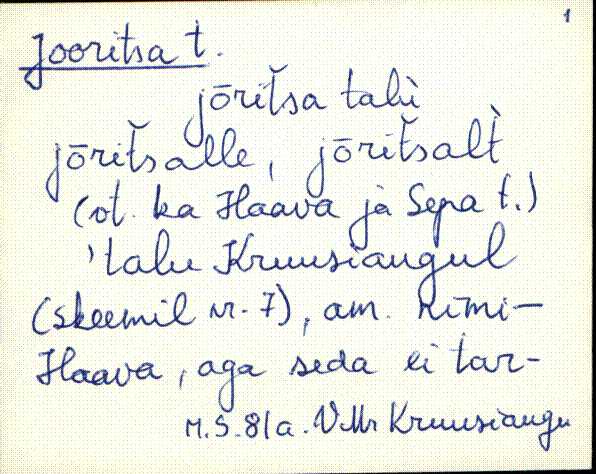 1
Jooritsa t.
jōrit̆sa talù
jōrit̆salle, jōrit̆salt̀
(vt. ka Haava ja Sepa t.)
'talu Kruusiaugul
(skeemil nr. 7), am. nimi-
Haava, aga seda ei tar-
M.S.81a. VMr Kruusiaugu